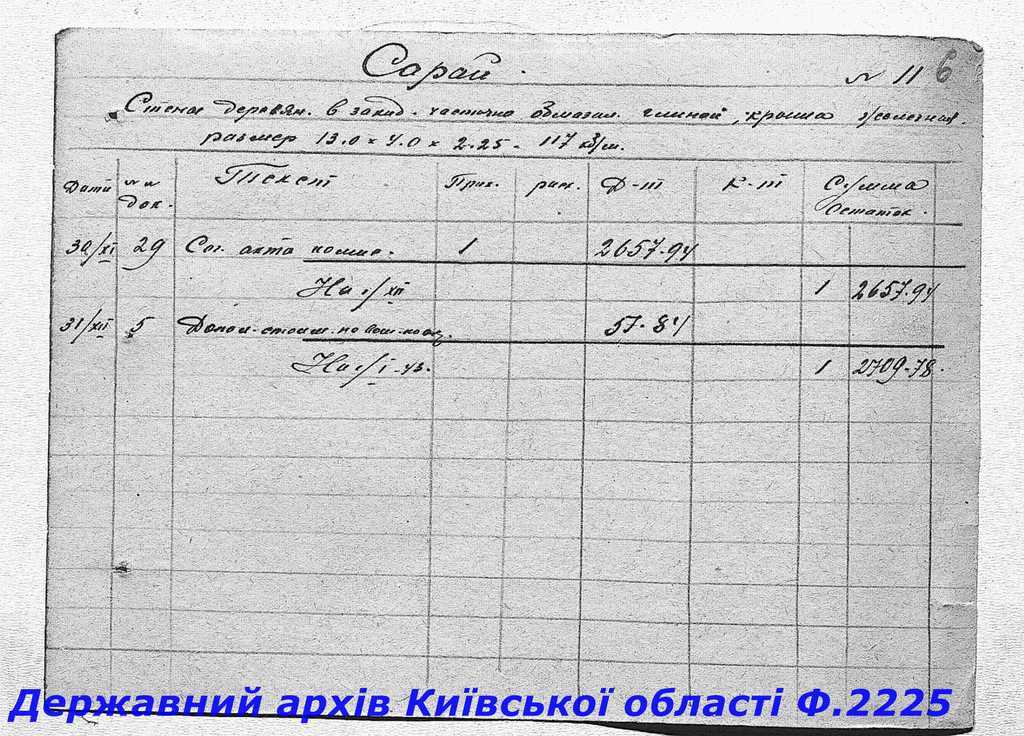 Сарай.
№ 11 6
Стены деревян. в закид. частично обмазан. глиной, крыша соломеная.
размер 13.0 х 4.0 х 2.25 - 117 кб/м.
Дата №№ док. Текст Прих. расх. Д-т К-т Сумма Остаток.
30/XI 29 Сог. акта комис. 1 2657-94
На 1/XII 1 2657-94
31/XII 5 Допол. стоим. по
На 1/I-43. 1 2709-78.
Державний архів Київської області Ф.2225